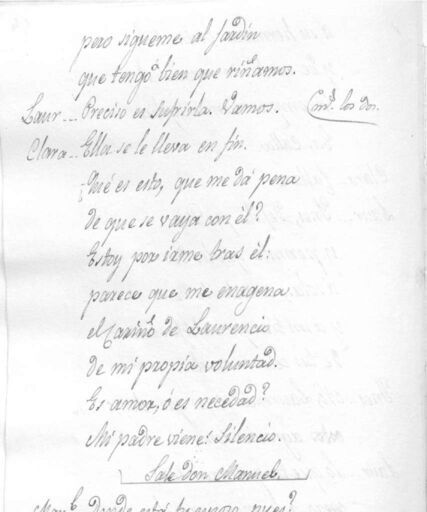 pero sigueme al Jardin
que tengo bien que riñamos.
Laur... Preciso es sufrirla. Vamos. Ban.e los dos.
Clara... Ella se le lleva en fin.
¿Qué es esto, que me dá pena
de que se vaya con él?
Estoy por irme tras él:
parece que me enagena
el Cariño de Laurencio
de mi propia voluntad.
Es amor, ó es necedad?
Mi padre viene: Silencio.
Sale don Manuel.
donde está tu pues?